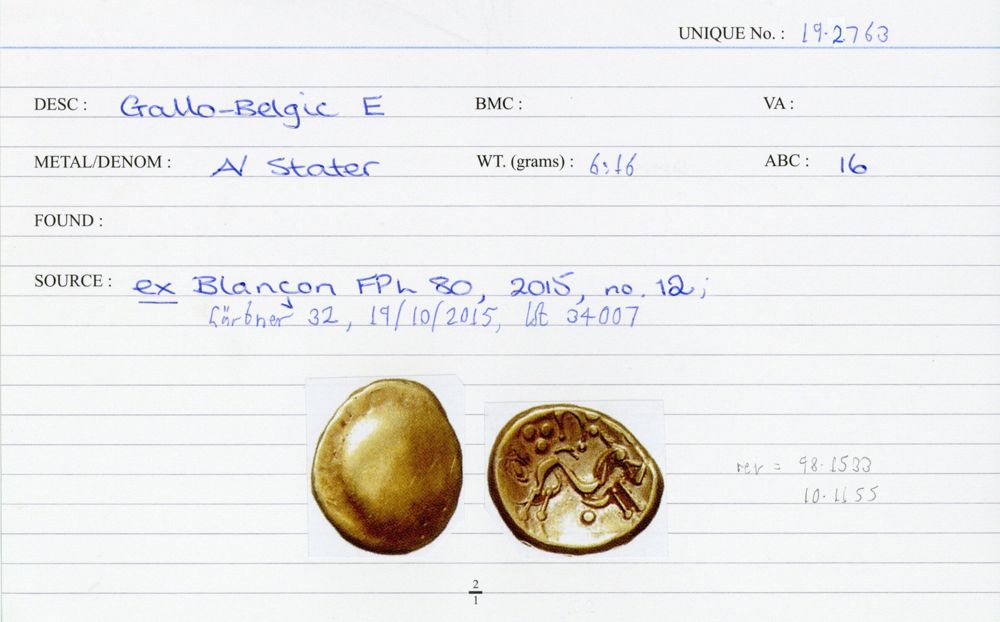 UNIQUE No. : 19.2763
DESC : Gallo-Belgic E BMC : VA :
METAL/DENOM : A/ Stater WT. (grams) : 6.16 ABC : 16
FOUND :
SOURCE : ex Blançon FPL 80, 2015, no. 12;
Gärtner 32, 19/10/2015, lot 34007
rev = 98.1533
10.1155
2
1